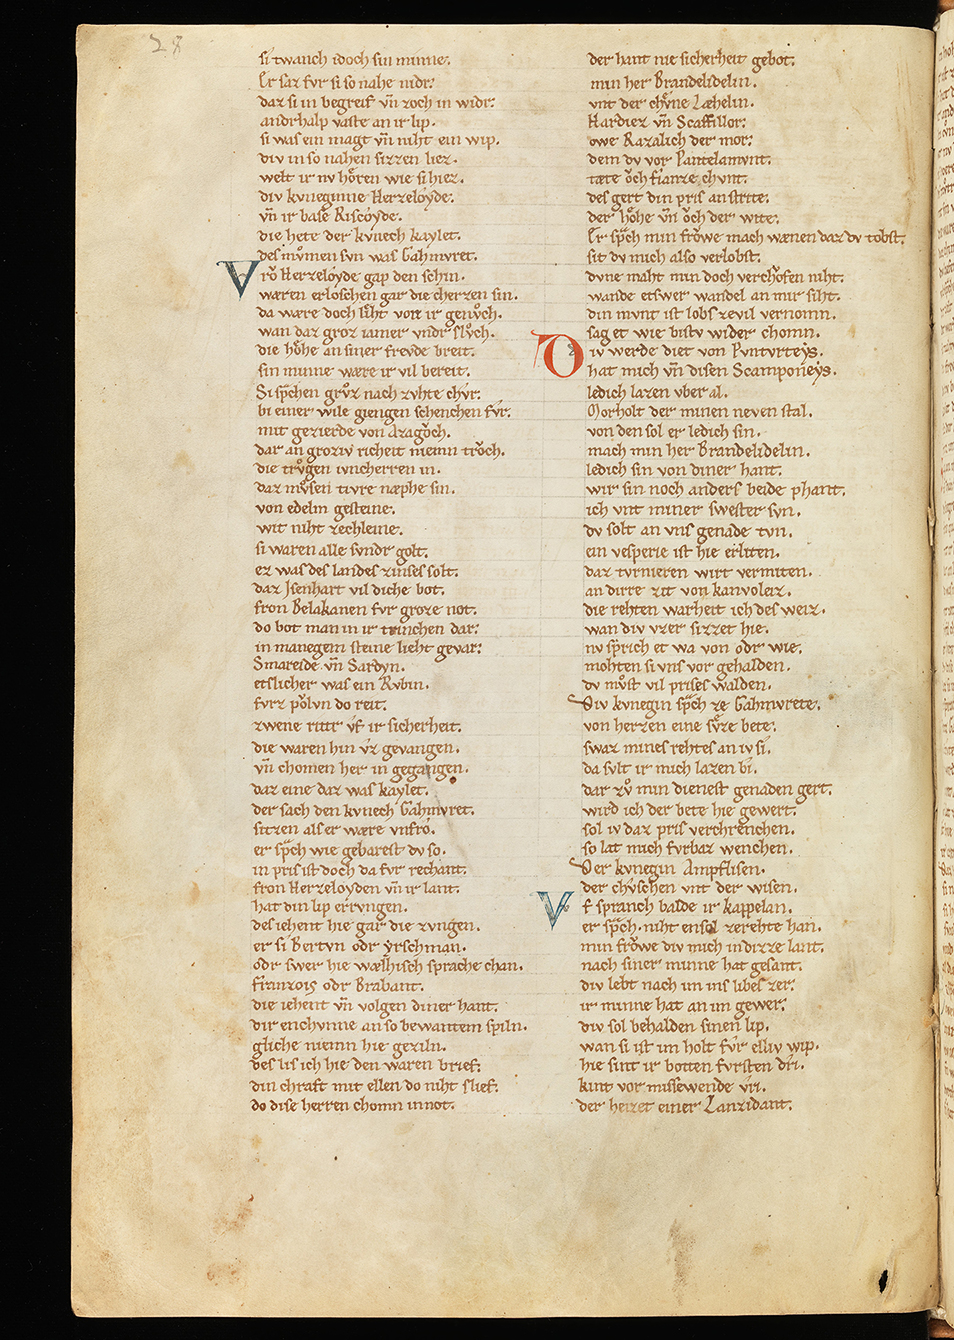 28
si twanch idoch sin minne.
Er saz fvr si so nahe nidr.
daz si in begreif vn̄ zoch in widr.
andrhalp vaste an ir lip.
si was ein magt vn̄ niht ein wip.
div in so nahen sizzen liez.
welt ir nv hoͤren wie si hiez.
div kvneginne Herzeloyde.
vn̄ ir base Riscoyde.
die hete der kvnech kaylet.
des mvͦmen svn was Gahmvret.
Vroͮ Herzeloyde gap den schin.
wæren erloschen gar die cherzen sin.
da wære doch liͤht von ir genvͦch.
wan daz groz iamer vndr slvͦch.
die hoͤhe an siner frevde breit.
sin minne wære ir vil bereit.
Si sp̃chen grvͦz nach zvhte chvr.
bi einer wile giengen schenchen fvr.
mit gezierde von Azagoͮch.
dar an groziv richeit niemn troͮch.
die trvͦgen ivncherren in.
daz mvͦsen tivre næphe sin.
von edelm gesteine.
wit niht zechleine.
si waren alle svndr golt.
ez was des landes zinses solt.
daz Jsenhart vil diche bot.
fron Belakanen fvr groze not.
do bot man in ir trinchen dar.
in manegem steine lieht gevar.
Smareide vn̄ Sardyn.
etslicher was ein Rvbin.
fvrz poͮlvn do reit.
zwene rittr vf ir sicherheit.
die waren hin vz gevangen.
vn̄ chomen her in gegangen.
daz eine daz was kaylet.
der sach den kvnech Gahmvret.
sitzen als er wære vnfro.
er sp̃ch wie gebarest dv so.
in pris ist doch da fvr rechant.
fron Herzeloyden vn̄ ir lant.
hat din lip ervngen.
des iehent hie gar die zvngen.
er si Bertvn odr yrschman.
odr swer hie wælhisch sprache chan.
franzois odr Brabant.
die iehent vn̄ volgen diner hant.
dir enchvnne an so bewantem spiln.
gliche niemn hie geziln.
des lis ich hie den waren brief.
din chraft mit ellen do niht slief.
do dise herren chomn in not.
der hant nie sicherheit gebot.
min her Brandelidelin.
vnt der chvͤne Læhelin.
Hardiez vn̄ Scaffillor.
owe Razalich der mor.
dem dv vor Pantelamvnt.
tæte oͮch fianze chvnt.
des gert din pris an strite.
der hoͤhe vn̄ oͮch der wite.
Er sp̃ch min froͮwe mach wænen daz dv tobst.
sit dv mich also verlobst.
dvne maht min doch verchoͮfen niht.
wande etswer wandel an mir siht.
din mvnt ist lobs zevil vernomn.
sag et wie bistv wider chomn.
Div werde diet von Pvntvrteys.
hat mich vn̄ disen Scamponeys.
ledich lazen vber al.
Morholt der minen neven stal.
von den sol er ledich sin.
mach min her Brandelidelin.
ledich sin von diner hant.
wir sin noch anders beide phant.
ich vnt miner swester svn.
dv solt an vns genade tvn.
ein vesperie ist hie erliten.
daz tvrnieren wirt vermiten.
an dirre zit von kanvoleiz.
die rehten warheit ich des weiz.
wan div vzer sizzet hie.
nv sp̃rich et wa von odr wie.
mohten si vns vor gehalden.
dv mvͦst vil prises walden.
Div kvnegin sp̃ch ze Gahmvrete.
von herzen eine svͤze bete.
swaz mines rehtes an iv si.
da svlt ir mich lazen bi.
dar zvͦ min dienest genaden gert.
wird ich der bete hie gewert.
sol iv daz pris verchrenchen.
so lat mich fvrbaz wenchen.
Der kvnegin Ampflisen.
der chvschen vnt der wisen.
Vf spranch balde ir kappelan.
er sp̃ch. niht en sol zerehte han.
min froͮwe div mich in dizze lant.
nach siner minne hat gesant.
div lebt nach im ins libes zer.
ir minne hat an im gewer.
div sol behalden sinen lip.
wan si ist im holt fvr elliv wip.
hie sint ir botten fvrsten dri.
kint vor missewende vri.
der heizet einer Lanzidant.